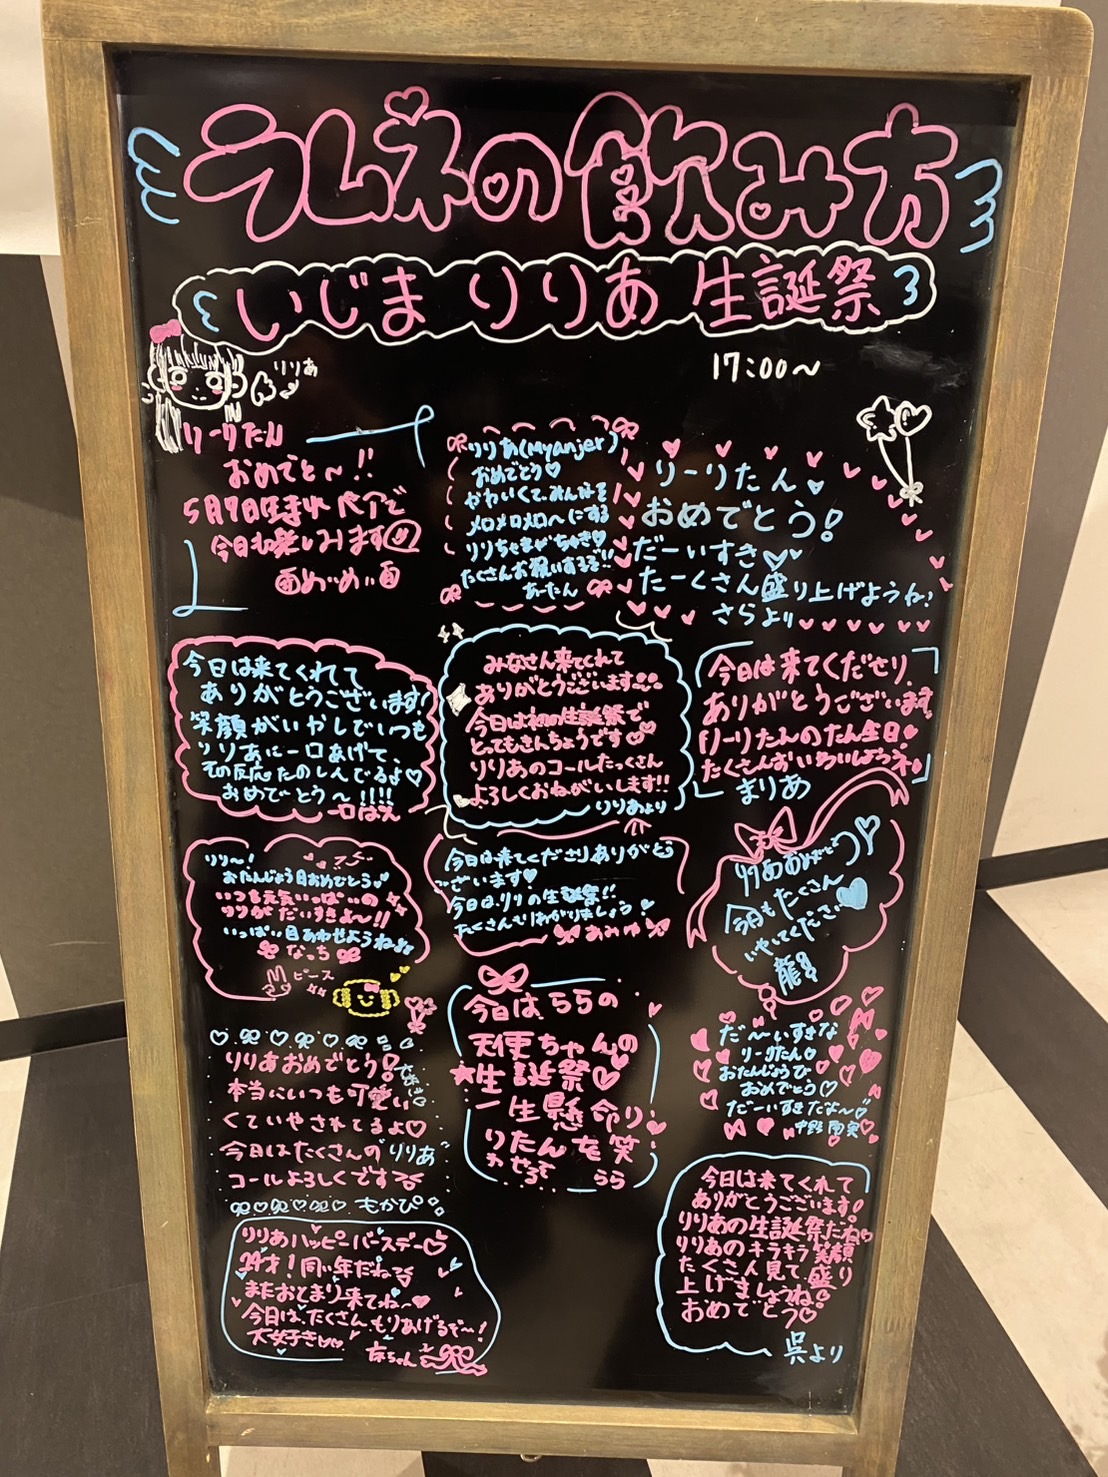 ラムネの飲み方
いじまりりあ 生誕祭
17:00〜
りりあ
りーりたん
おめでと〜!!
5月9日生まれ
今日も楽しみます
りりあ(Myanjer)
おめでとう♡
かわいくてみんなを
メロメロメロ〜にする
りりちゃまがちゅき♡
たくさんお願いするぞ!!
あーたん
りーりたん♡
おめでとう!
だーいすき♡
たーくさん盛り上げようね!
さらより
今日は来てくれて
ありがとうございます!
笑顔がいやしでいつも
りりあに一口あげて、
その反応たのしんでるよ♡
おめでとう〜!!!!
みなさん来てくれて
ありがとうございます
今日は初の生誕祭で
とってもきんちょうです♡
りりあのコールたっくさん
よろしくおねがいします!!
りりあより
今日は来てくださり、
ありがとうございます。
りーりたんのたん生日♡
たくさんおいわいしようネ♡
まりあ
りり〜!
おたんじょう日おめでとう♡
いつも元気いっぱいの
りりがだいすきよ〜!!
いっぱい目あわせようね
なっち
ピース
今日は来てくださりありがとう
ございます♡
今日はりりの生誕祭!!
たくさんもりあがりましょう!
あみゆ
りりあおめでとう♡
今日もたくさん
いやしてください♡
龍
りりあおめでとう!
大好き♡
本当にいつも可愛い
くていやされてるよ♡
今日はたくさんのりりあ
コールよろしくです
もかぴ
今日は、ららの
天使ちゃんの
★生誕祭♡
一生懸命り
りたんを笑
わせるぞ
らら
だ〜いすきな
りーりたん♡
おたんじょうび
おめでとう♡
だーいすきだよ〜♡
りりあハッピーバースデー♡
24才!同い年だね
またおとまり来てね〜♡
今日は、たくさんもりあげるぞ〜!
大好き♡♡
今日は来てくれて
ありがとうございます!
りりあの生誕祭だね♡
りりあのキラキラ笑顔
たくさん見て盛り
上げましょうね
おめでとう♡
呉より